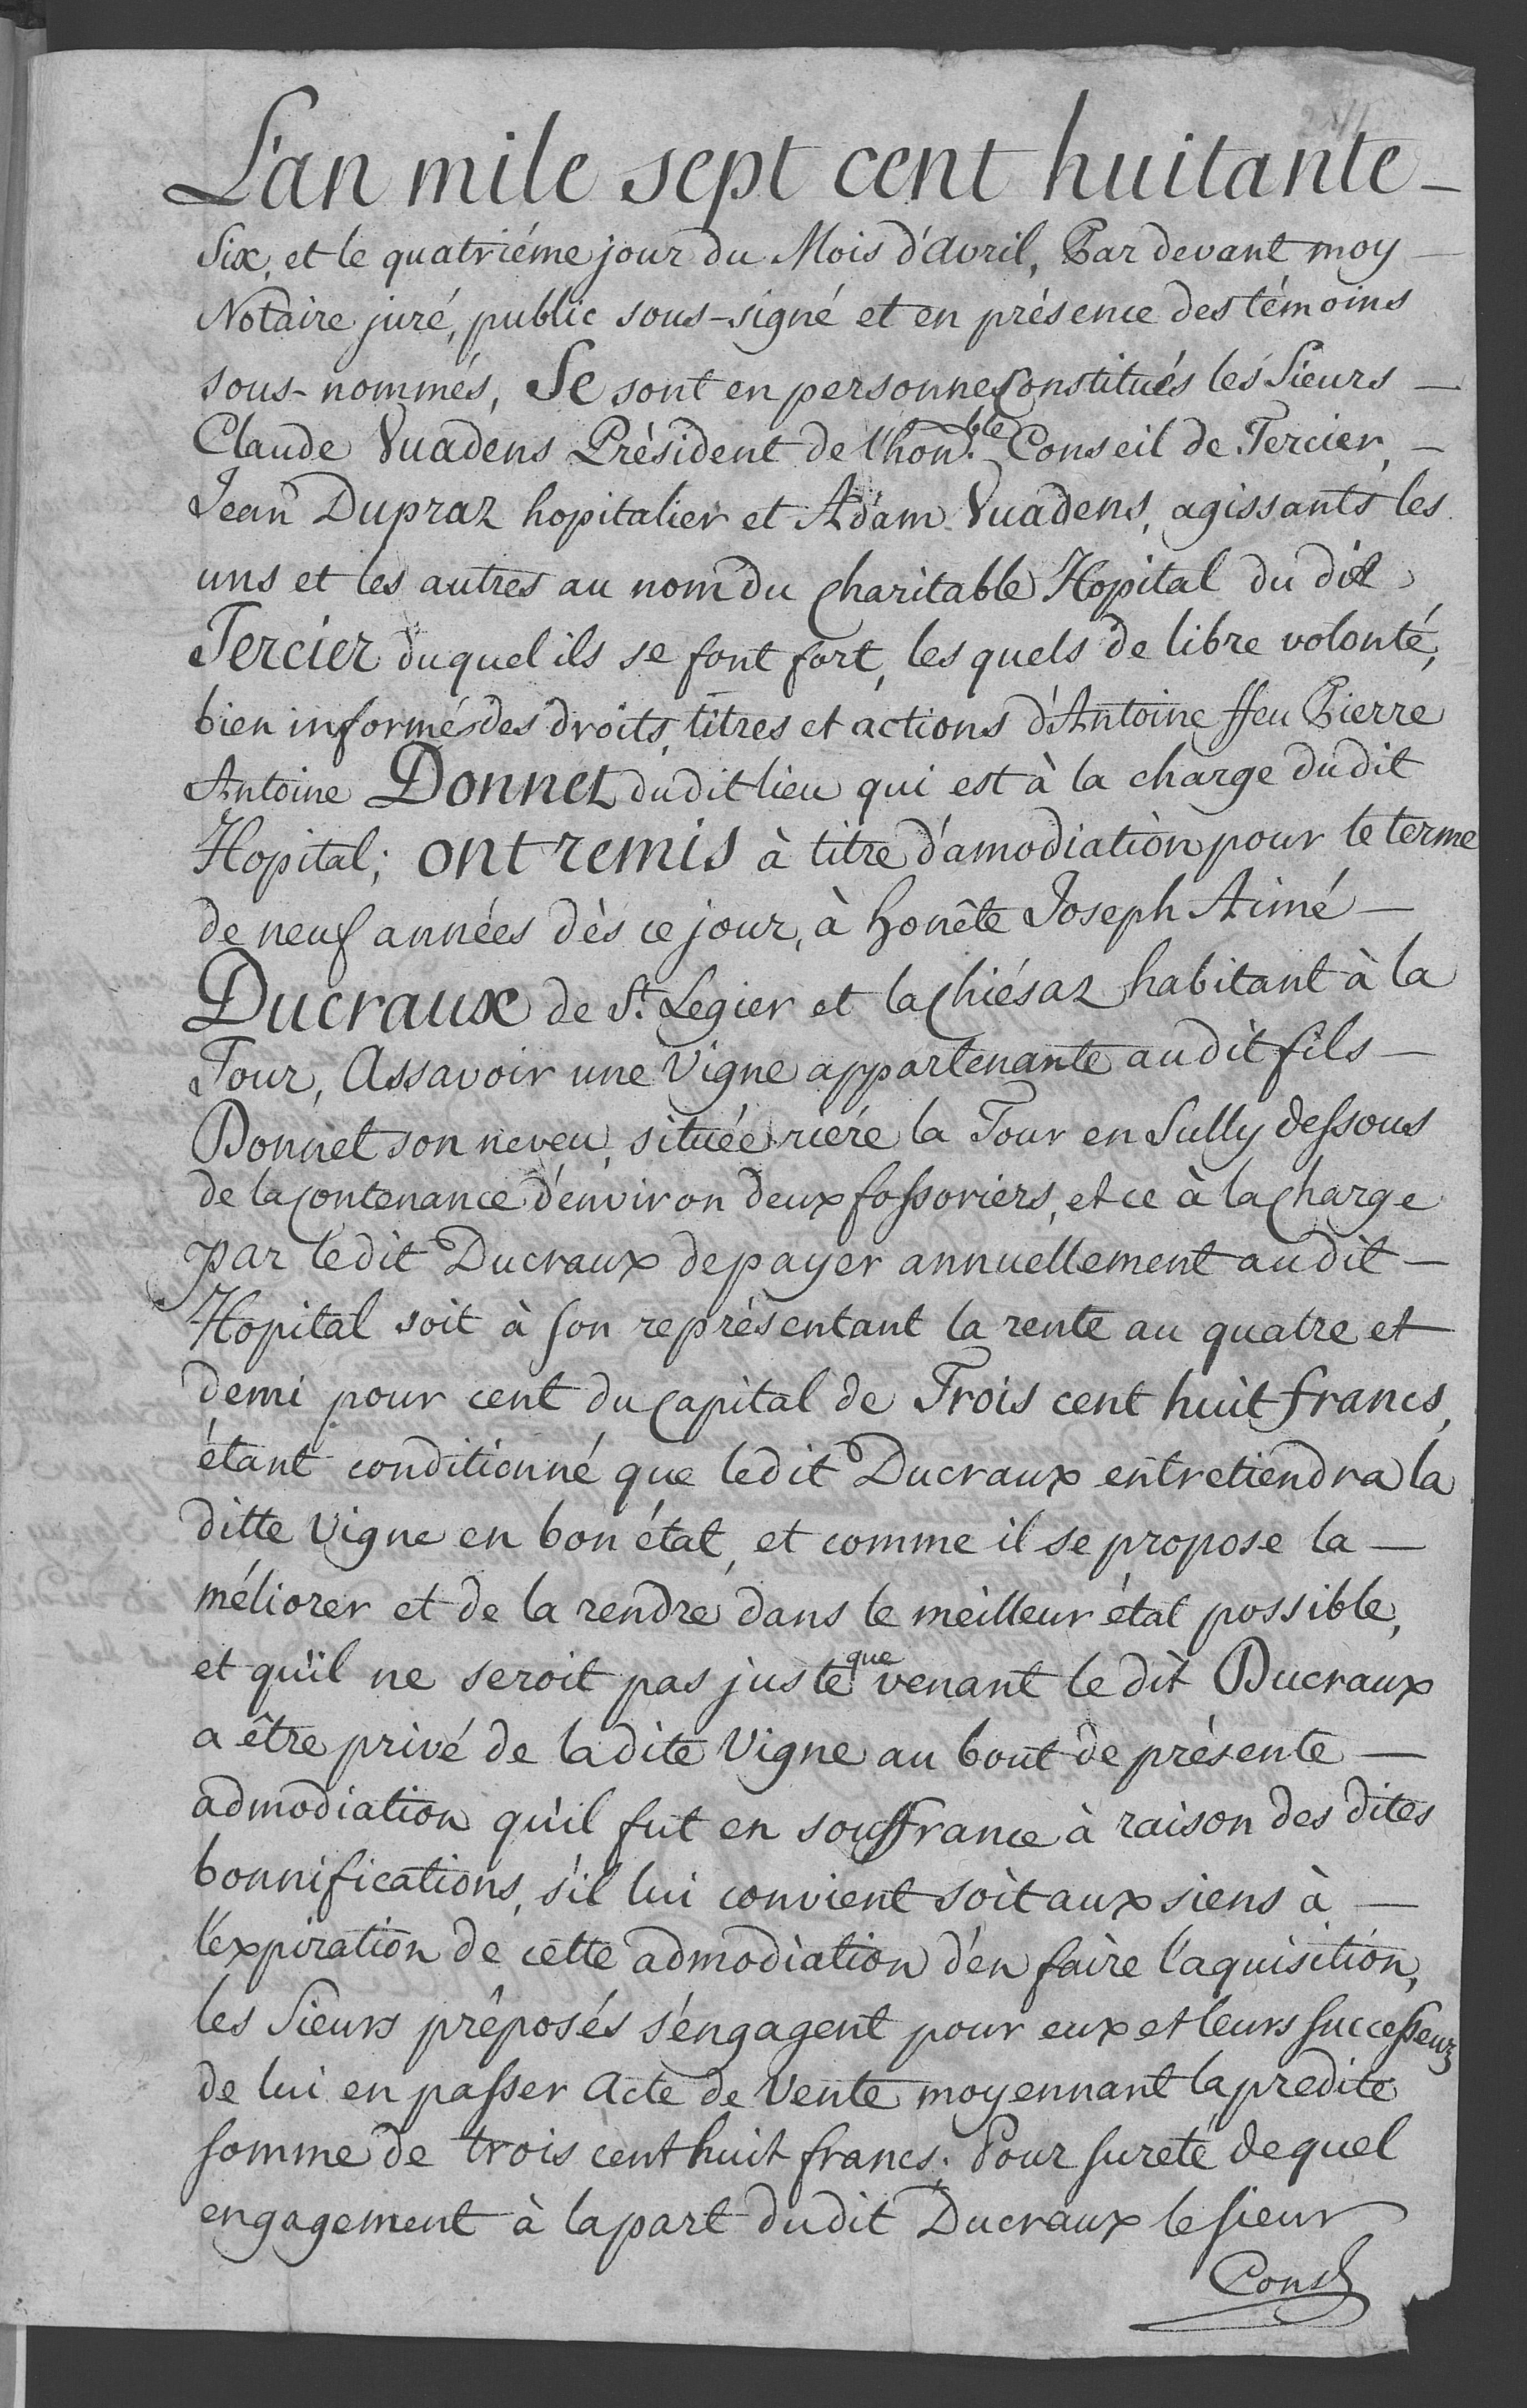 L'an mile sept cent huitante —
Six, et le quatriéme jour du Mois d'Avril, Par devant moy —
Notaire juré, public sous-signé et en présence des témoins
sous-nommés, Se sont en personne Constitués les Sieurs —
Claude Vuadens Président de l'hon.ble Conseil de Tercier, —
Jean Dupraz hopitalier et Adam Vuadens, agissants les
uns et les autres au nom du Charitable Hopital du dit
Tercier duquel ils se font fort, les quels de libre volonté,
bien informés des droits, titres et actions d'Antoine ffeu Pierre
Antoine Donnet dudit lieu qui est à la charge dudit
Hopital; ont remis à titre d'amodiation pour le terme
de neuf années dès ce jour, à honête Joseph Aimé —
Ducraux de St. Legier et la Chiésaz habitant à la
Tour, Assavoir une Vigne appartenante audit fils —
Donnet son neveu, située riére la Tour en Sully dessous
de la Contenance d'environ deux fossoriers, et ce à la Charge
par ledit Ducraux de payer annuellement audit —
Hopital soit à son représentant la rente au quatre et
demi pour cent du Capital de Trois cent huit francs,
étant conditionné que ledit Ducraux entretiendra la
ditte Vigne en bon état, et comme il se propose la —
méliorer et de la rendre dans le meilleur état possible,
et qu'il ne seroit pas juste que venant ledit Ducraux
a être privé de ladite Vigne au bout de présente —
admodiation qu'il fut en souffrance à raison des dites
bonnifications, s'il lui convient soit aux siens à —
l'expiration de cette admodiation d'en faire l'aquisition,
les Sieurs préposés s'éngagent pour eux et leurs successeurs
de lui en passer Acte de Vente moyennant la predite
somme de trois cent huit francs; Pour sureté de quel
engagement à la part dudit Ducraux le sieur